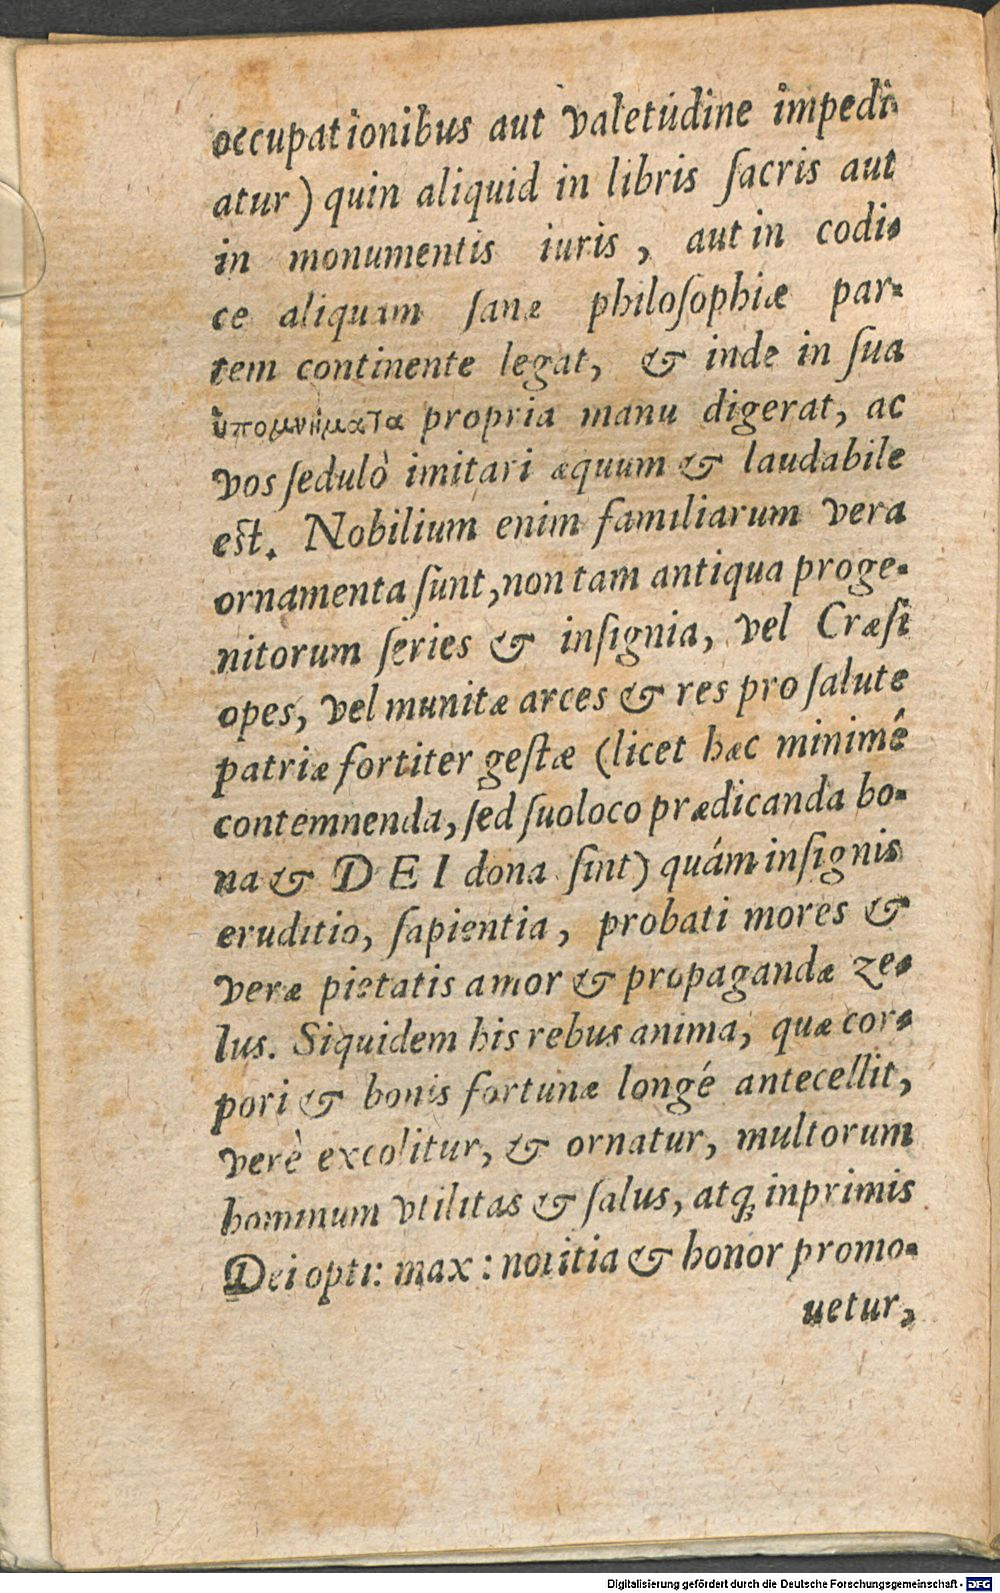 occupationibus aut valetúdine impedi
atur) quin aliquid in libris ſacris aut
in monumentis iuris, aut in codi-
ce aliquam ſanæ philoſophiæ par-
tem continente legat, & inde in ſua
ὑπομνήματα propria manu digerat, ac
vos ſedulò imitari æquum & laudabile
eſt. Nobilium enim familiarum vera
ornamenta ſunt, non tam antiqua proge-
nitorum ſeries & inſignia, vel Cræſi
opes, vel munitæ arces & res pro ſalute
patriæ fortiter geſtæ (licet hæc minimé
contemnenda, ſed ſuo loco prædicanda bo-
na & DEI dona ſint) quám inſignis
eruditio, ſapientia, probati mores &
veræ pietatis amor & propagandæ ze-
lus. Siquidem his rebus anima, quæ cor-
pori & bonis fortunæ longé antecellit,
verè excolitur, & ornatur, multorum
hominum vtilitas & ſalus, atq; inprimis
Dei opti: max: notitia & honor promo-
uetur,
Digitalisierung gefördert durch die Deutsche Forschungsgemeinschaft - DFG